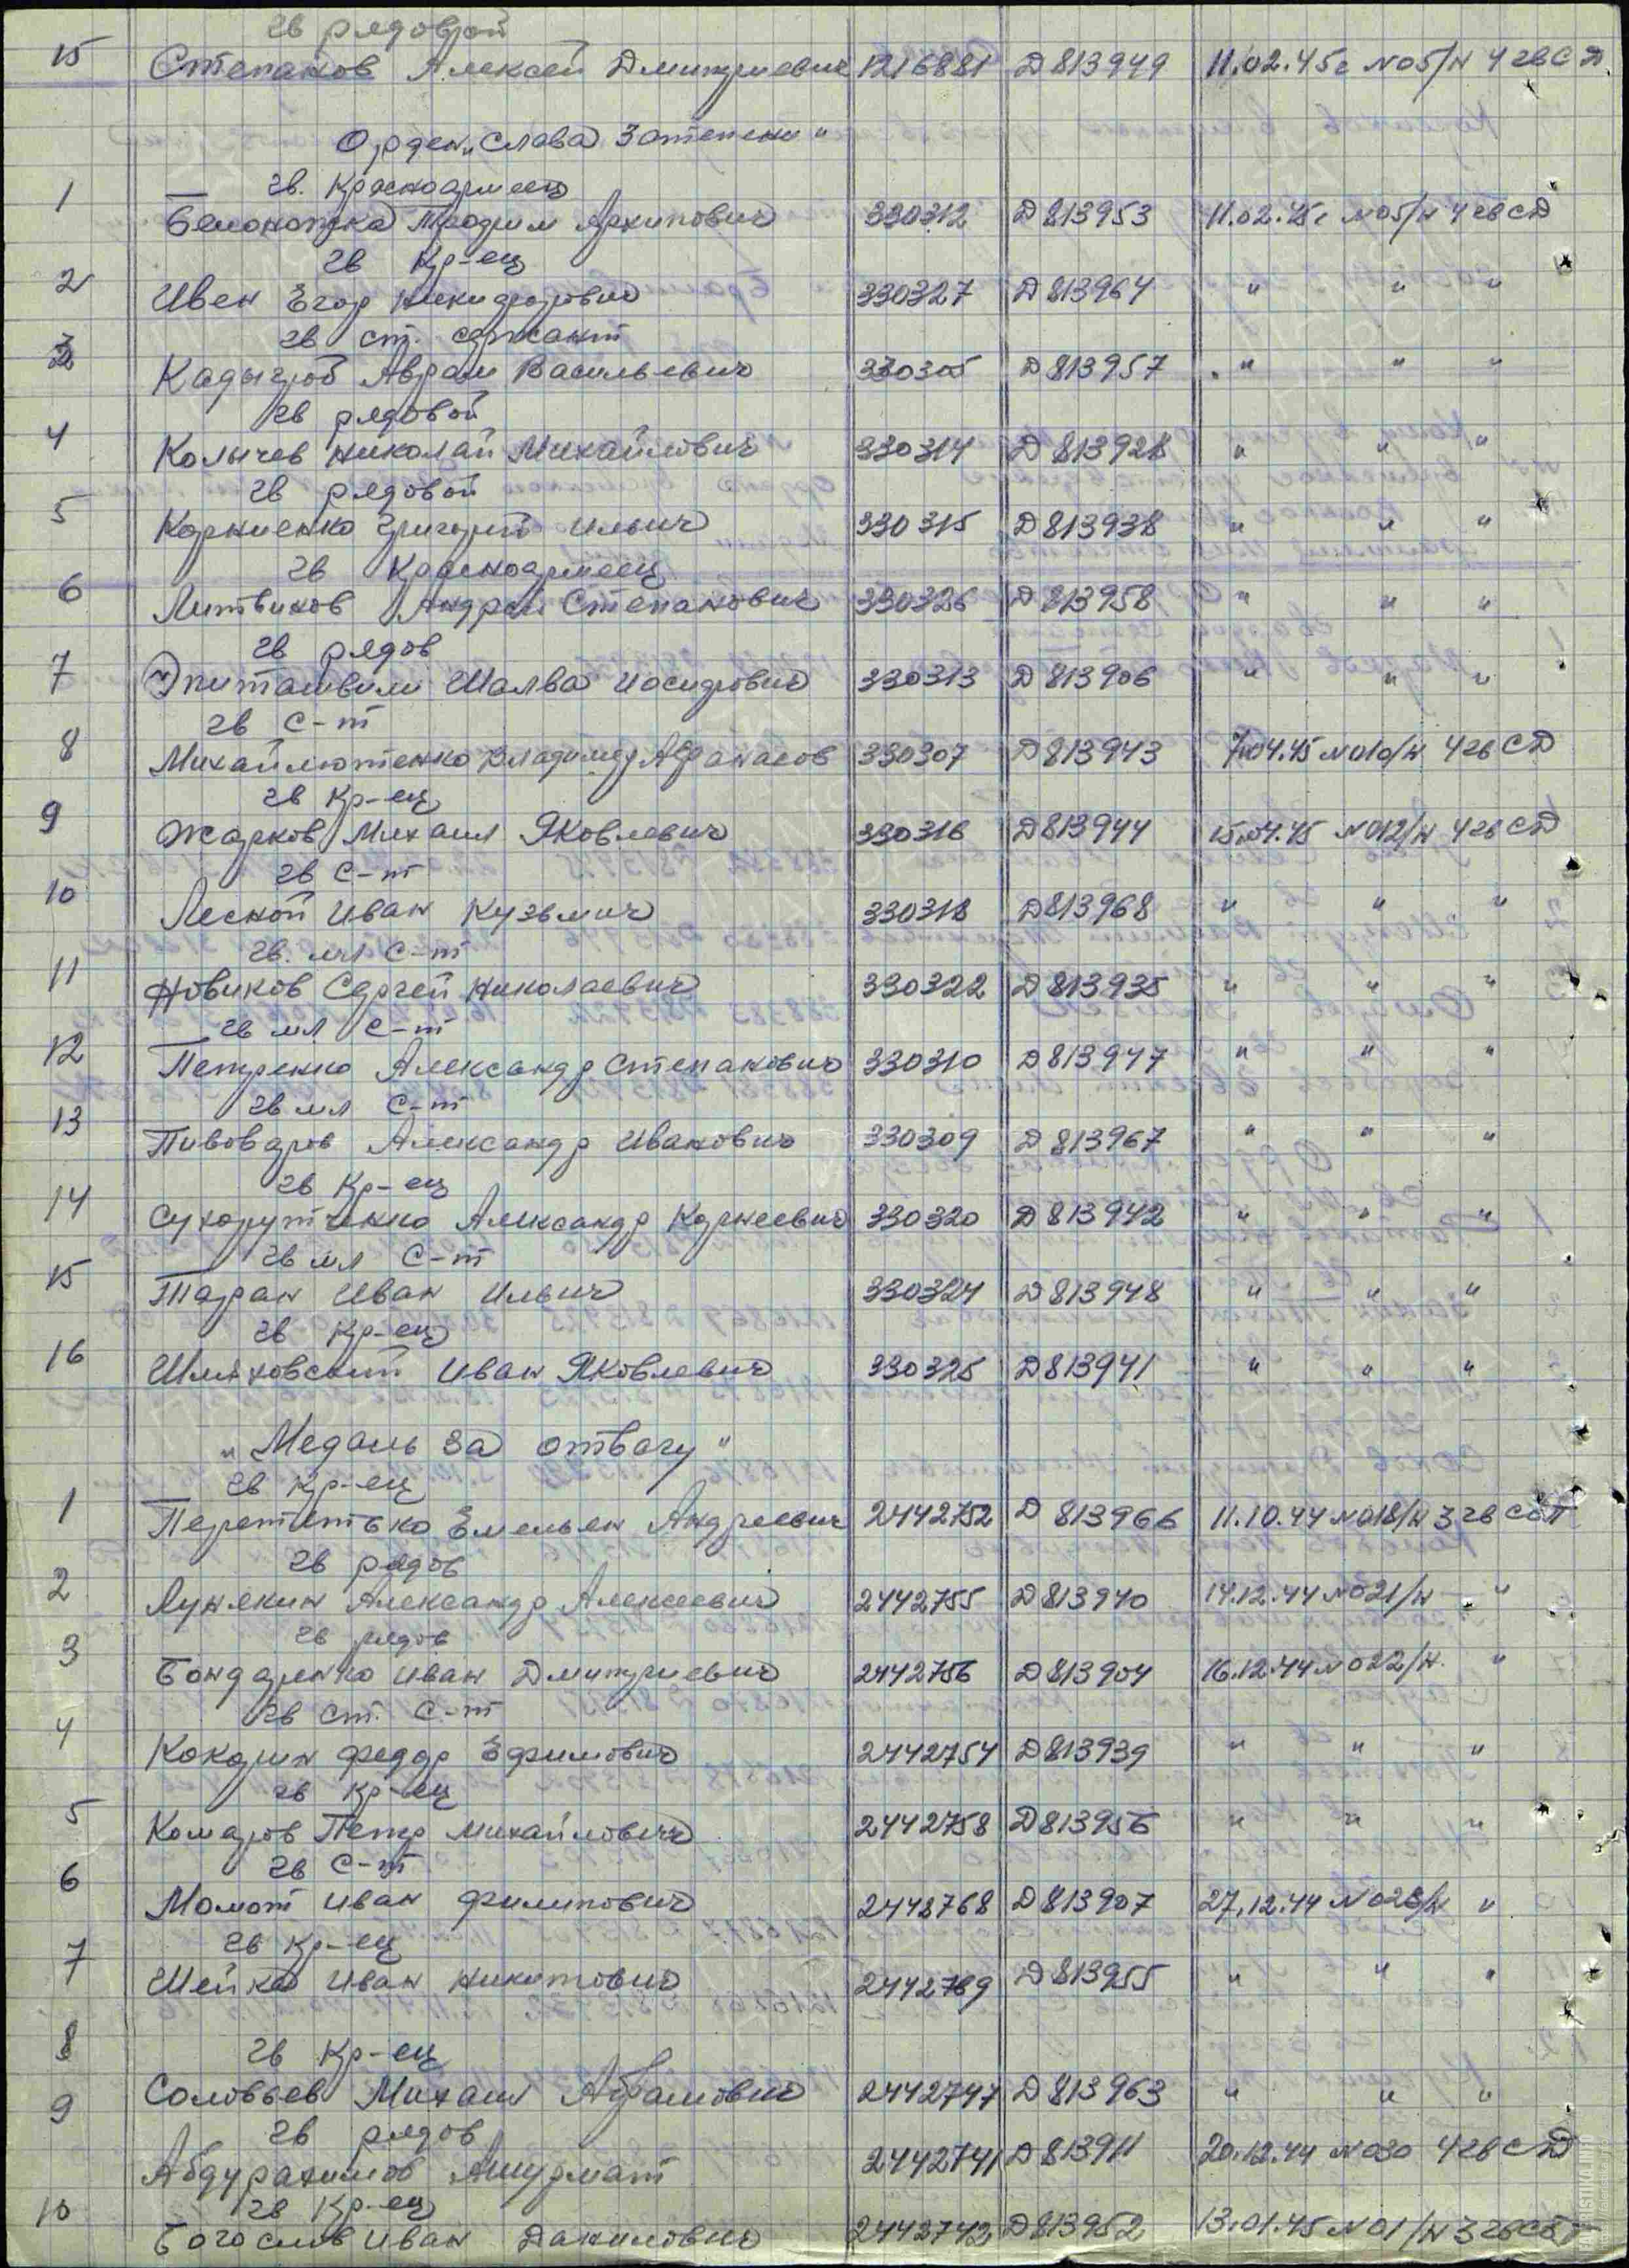 гв рядовой
15 Степанов Алексей Дмитриевич 1216881 Д 813949 11.02.45г №05/н 4 гв СД
Орден „Слава 3 степени"
гв. Красноармеец
1 Трофим Архипович 330312 Д 813953 11.02.45г №05/н 4 гв СД
гв Кр-ец
2 Ивен Егор Никифорович 330327 Д 813964 " " "
гв ст. сержант
3 Кадыгроб Аврам Васильевич 330305 Д 813957 " " "
гв рядовой
4 Колычев Николай Михайлович 330314 Д 813928 " " "
гв рядовой
5 Корниенко Григорий Ильич 330315 Д 813938 " " "
гв Красноармеец
6 Литвинов Андрей Степанович 330326 Д 813958 " " "
гв рядов
7 Эпиташвили Шалва Иосифович 330313 Д 813906 " " "
гв С-т
8 Михайлютенко Владимир Афанасов 330307 Д 813943 7.04.45 №010/н 4 гв СД
гв Кр-ец
9 Жарков Михаил Яковлевич 330316 Д 813944 15.04.45 №012/н 4 гв СД
гв С-т
10 Леской Иван Кузьмич 330318 Д 813968 " " "
гв. мл С-т
11 Новиков Сергей Николаевич 330322 Д 813935 " " "
гв мл С-т
12 Петренко Александр Степанович 330310 Д 813947 " " "
гв мл С-т
13 Пивоваров Александр Иванович 330309 Д 813967 " " "
гв Кр-ец
14 Сухорутченко Александр Корнеевич 330320 Д 813942 " " "
гв мл С-т
15 Таран Иван Ильич 330324 Д 813948 " " "
гв Кр-ец
16 Шляховский Иван Яковлевич 330325 Д 813941 " " "
„Медаль За отвагу"
гв Кр-ец
1 Емельян Андреевич 2442752 Д 813966 11.10.44 №018/н 3 гв СбП
гв рядов
2 Лунякин Александр Алексеевич 2442755 Д 813940 14.12.44 №021/н "
гв рядов
3 Бондаренко Иван Дмитриевич 2442756 Д 813904 16.12.44 №022/н "
гв ст. С-т
4 Кокорин Федор Ефимович 2442754 Д 813939 " " "
гв Кр-ец
5 Комаров Петр Михайлович 2442758 Д 813956 " " "
гв С-т
6 Момот Иван Филипович 2442768 Д 813907 27.12.44 №023/н "
гв Кр-ец
7 Шейко Иван Никитович 2442769 Д 813955 " " "
8 гв Кр-ец
9 Соловьев Михаил Абрамович 2442747 Д 813963 " " "
гв рядов
Абдурахимов Ашурмат 2442741 Д 813911 20.12.44 №030 4 гв СД
10 гв Кр-ец
Богослов Иван Данилович 2442742 Д 813952 13.01.45 №01/н 3 гв
FALERISTIKA.INFO